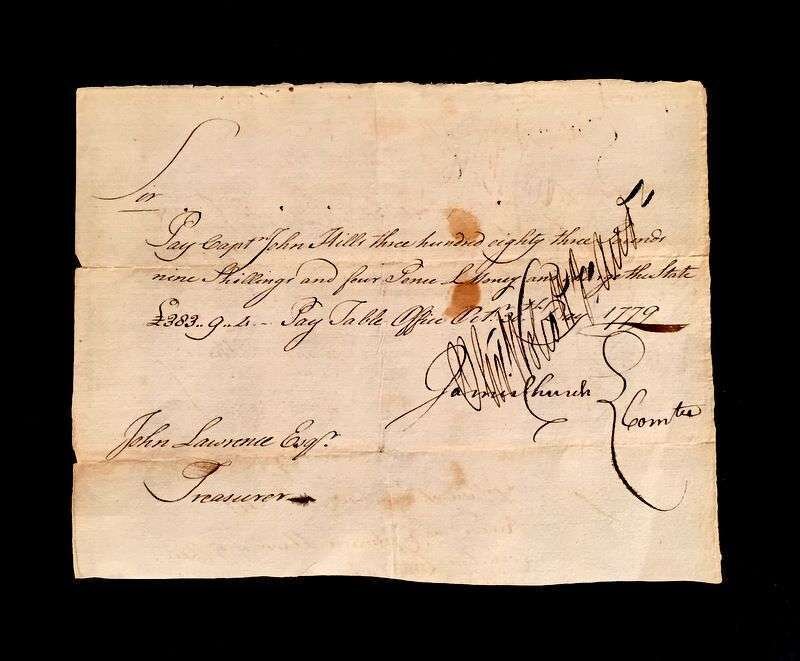 Sir
Pay Capt.n John Mills three hundred eighty three pounds
nine Shillings and four Pence L Money and the State
£383..9..4.- Pay Table Office Oct.r 1779
James Church
Comtee
John Lawrence Esq.r
Treasurer